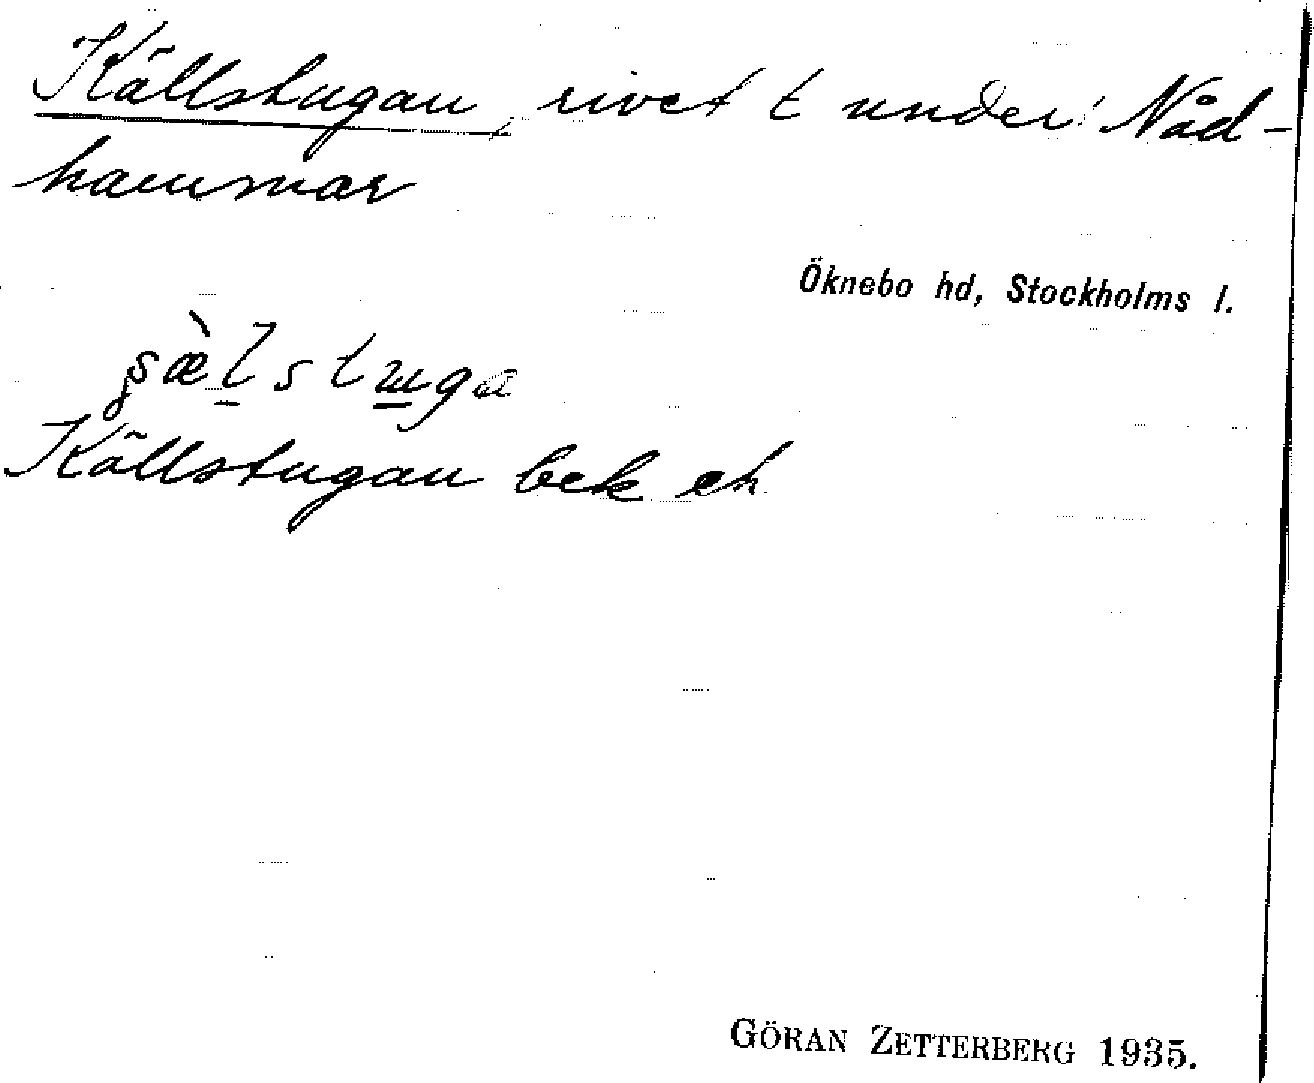 Källstugan, rivet t under Nåd-
hammar
Öknebo hd, Stockholms l.
Källstugan bek eh
GÖRAN ZETTERBERG 1935.